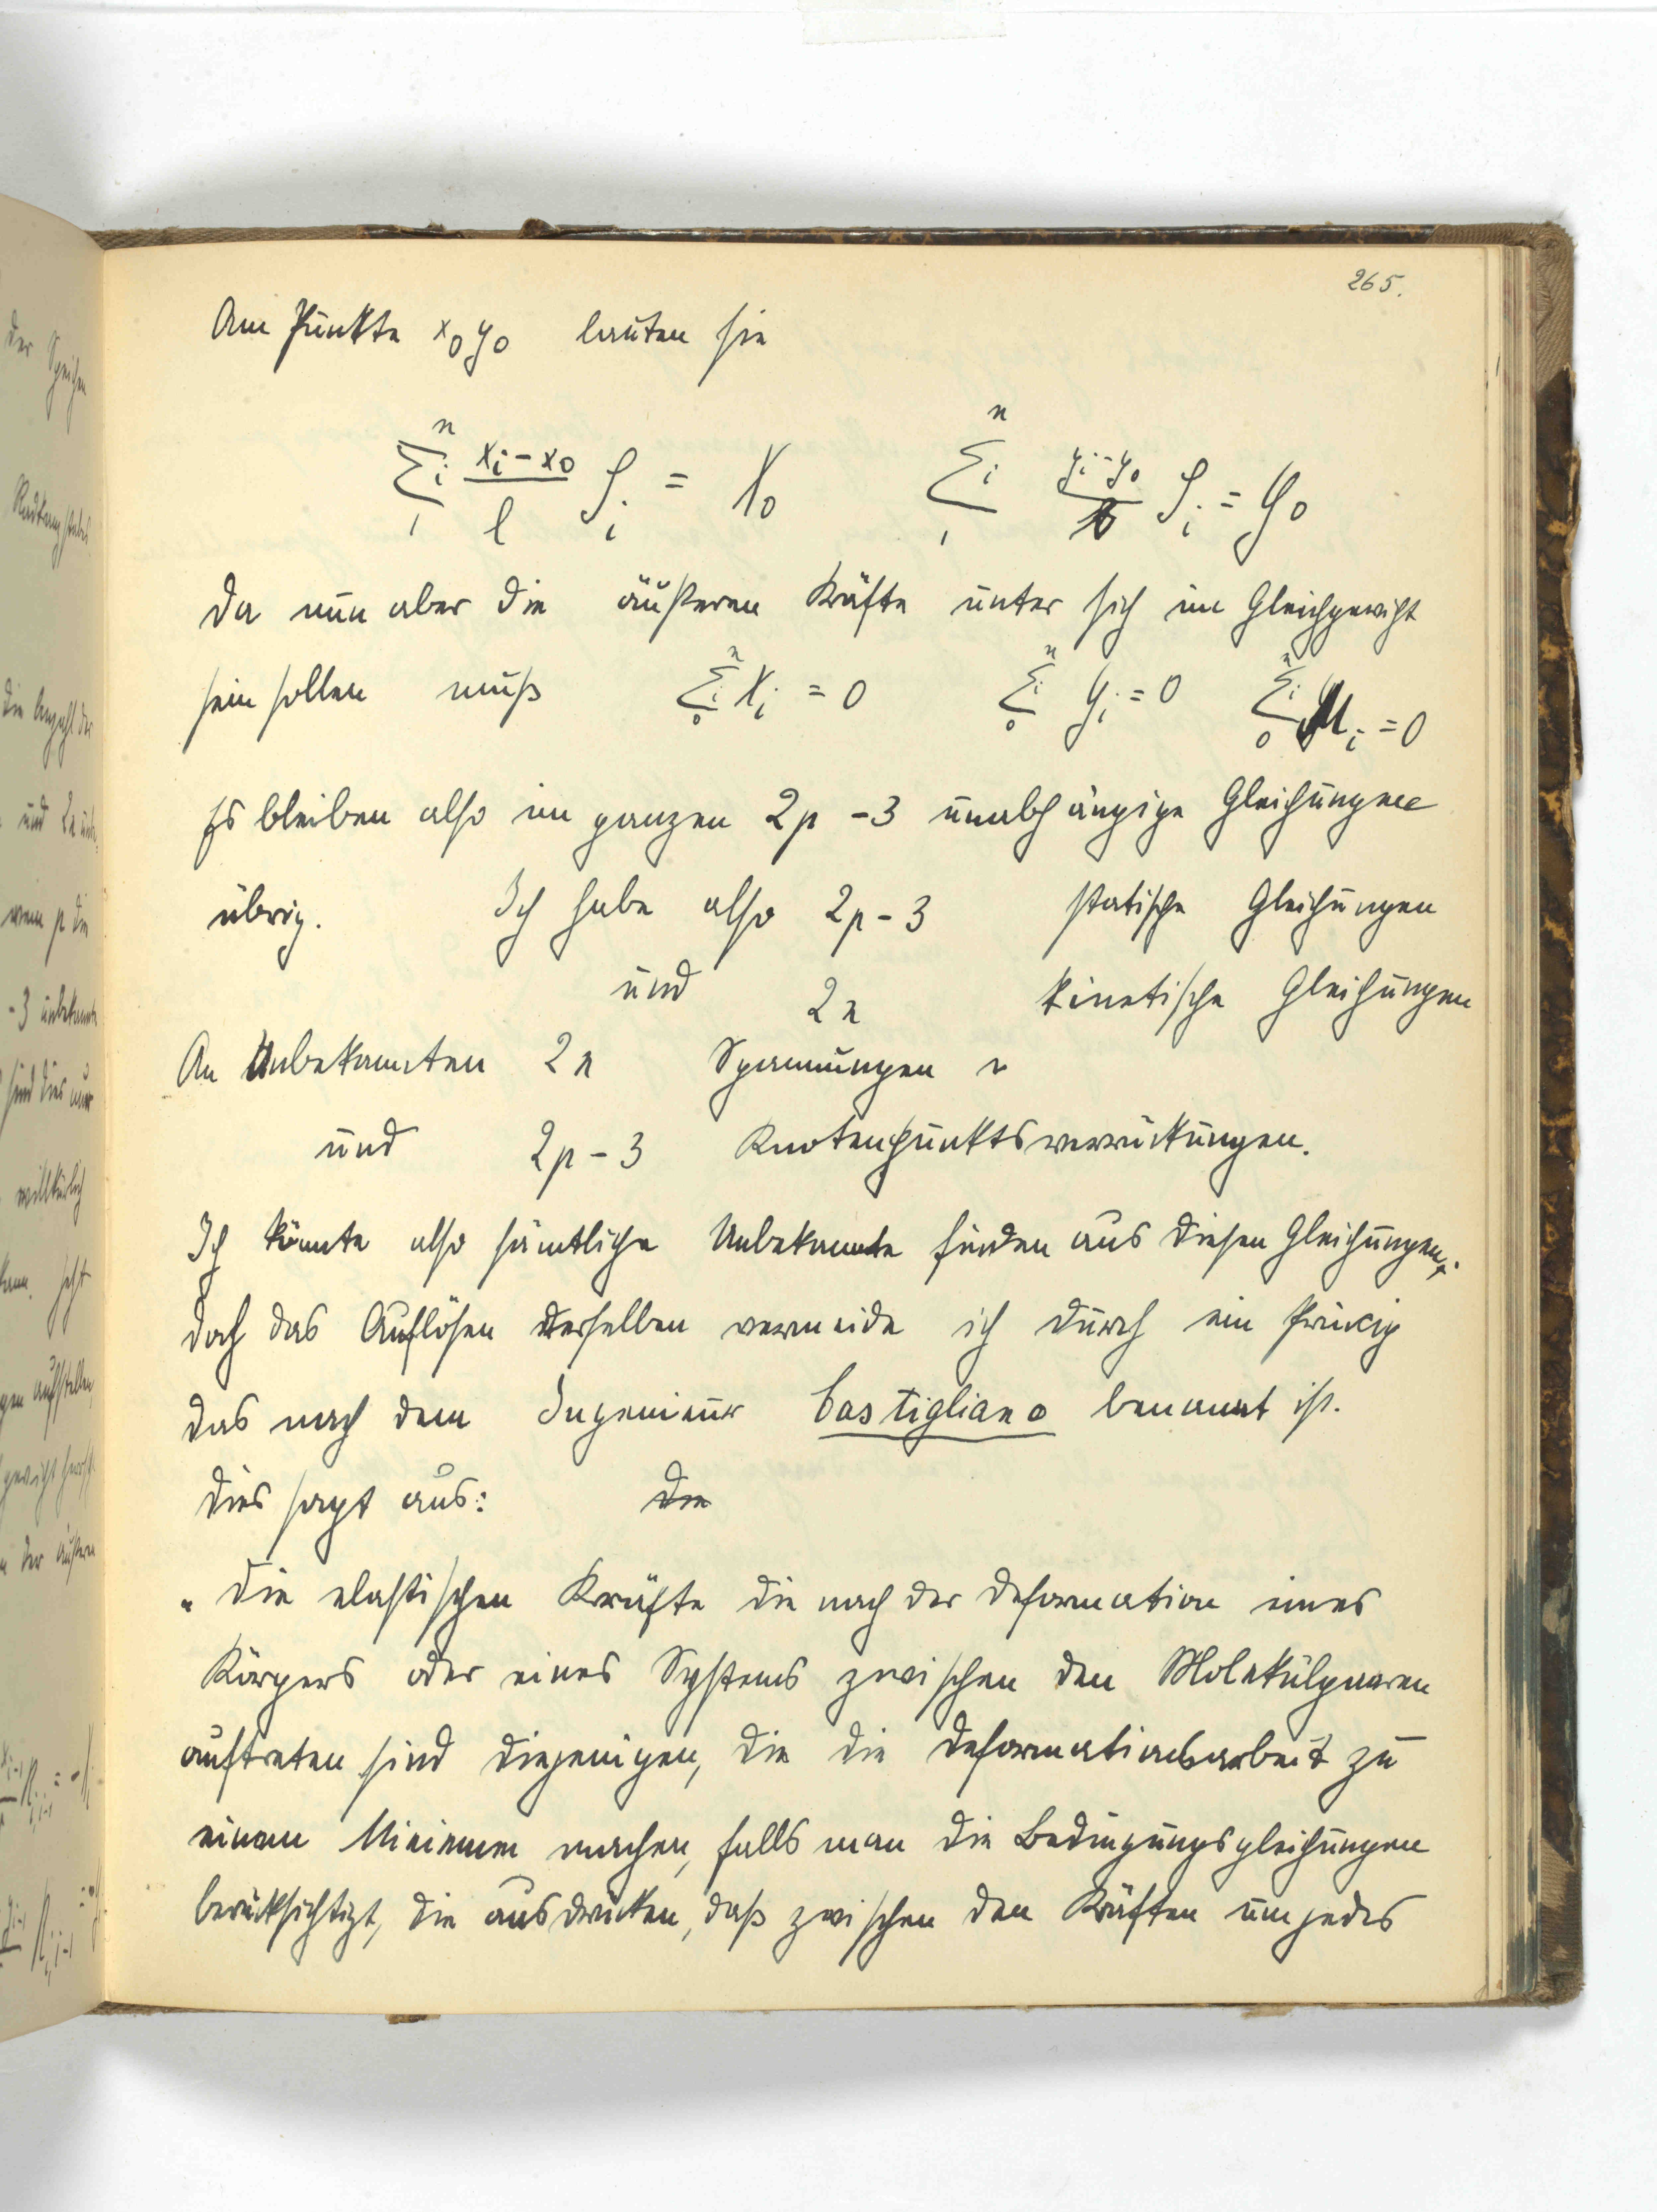 265.
Am Punkte x₀y₀ lauten sie
n∑i1 (xi - x0)/l Si = X0     n∑i1 (yi - y0)/l Si = Y0
Da nun aber die äußeren Kräfte unter sich im Gleichgewicht
sein sollen muß n∑i0 Xi = 0     n∑i0 Yi = 0     n∑i0 Mi = 0
Es bleiben also im ganzen 2p - 3 unabhängige Gleichungen
übrig. Ich habe also 2p - 3 statische Gleichungen
und 2n kinetische Gleichungen
An Unbekannten 2n Spannungen
und 2p - 3 Knotenpunktsverrückungen.
Ich könnte also sämtliche Unbekannte finden aus diesen Gleichungen.
doch das Auflösen derselben vermeide ich durch ein Prinzip
das nach dem Ingenieur Castigliano benannt ist.
Dies sagt aus: Die
„ Die elastischen Kräfte die nach der Deformation eines
Körpers oder eines Systems zwischen den Molekülpaaren
auftreten sind diejenigen, die die Deformationsarbeit zu
einem Minimum machen, falls man die Bedingungsgleichungen
berücksichtigt, die ausdrücken, daß zwischen den Kräften um jedes